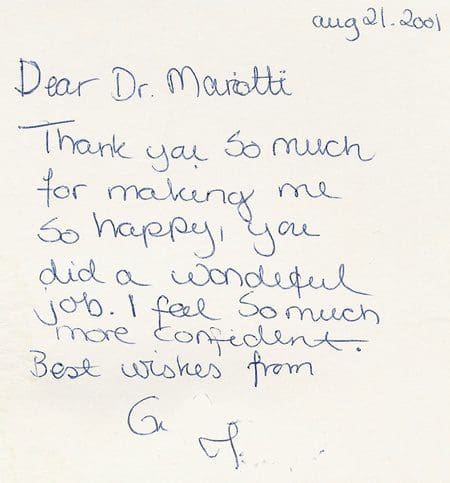 aug 21. 2001
Dear Dr. Mariotti
Thank you so much
for making me
so happy, you
did a wondeful
job. I feel so much
more confident.
Best wishes from
G.